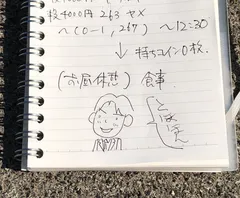 投4000円 263 ヤメ
～(0-1, 267) ～12:30
↓ 持ちコイン0枚.
(お昼休憩) 食事
とほほ